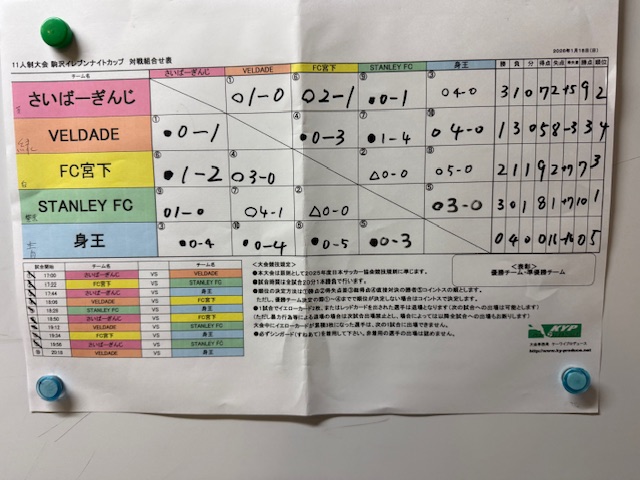 2026年1月18日(日)
11人制大会 駒沢イレブンナイトカップ 対戦組合せ表
チーム名 さいばーぎんじ VELDADE FC宮下 STANLEY FC 身王 勝 負 分 得点 失点 得失差 勝点 順位
さいばーぎんじ ①○1-0 ⑥○2-1 ⑨●0-1 ③○4-0 3 1 0 7 2 +5 9 2
VELDADE ①●0-1 ④●0-3 ⑦●1-4 ⑩○4-0 1 3 0 5 8 -3 3 4
FC宮下 ⑥●1-2 ④○3-0 ②△0-0 ⑧○5-0 2 1 1 9 2 +7 7 3
STANLEY FC ⑨○1-0 ⑦○4-1 ②△0-0 ⑤○3-0 3 0 1 8 1 +7 10 1
身王 ③●0-4 ⑩●0-4 ⑧●0-5 ⑤●0-3 0 4 0 0 16 -16 0 5
試合開始 チーム名 VS チーム名
① 17:00 さいばーぎんじ VS VELDADE
② 17:22 FC宮下 VS STANLEY FC
③ 17:44 さいばーぎんじ VS 身王
④ 18:06 VELDADE VS FC宮下
⑤ 18:28 STANLEY FC VS 身王
⑥ 18:50 さいばーぎんじ VS FC宮下
⑦ 19:12 VELDADE VS STANLEY FC
⑧ 19:34 FC宮下 VS 身王
⑨ 19:56 さいばーぎんじ VS STANLEY FC
⑩ 20:18 VELDADE VS 身王
<大会競技規定>
●本大会は原則として2025年度日本サッカー協会競技規則に準じます。
●試合時間は全試合20分1本勝負で行います。
●順位の決定方法は①勝点②得失点差③総得点④直接対決の勝者⑤コイントスの順とします。
ただし、優勝チーム決定の際①~④までで順位が決定しない場合はコイントスで決定します。
●1試合でイエローカード2枚、またはレッドカードを出された選手は退場となります(次の試合への出場は可能とします)
(ただし暴力行為等による退場の場合は次試合出場停止とし、場合によっては以降全試合への出場もお断りします)
大会中にイエローカードが累積3枚になった選手は、次の1試合に出場できません。
●必ずシンガード(すねあて)を着用して下さい。未着用の選手の出場は認めません。
<表彰>
優勝チーム・準優勝チーム
KYP
大会事務局 ケーワイプロデュース
http://www.ky-produce.net/